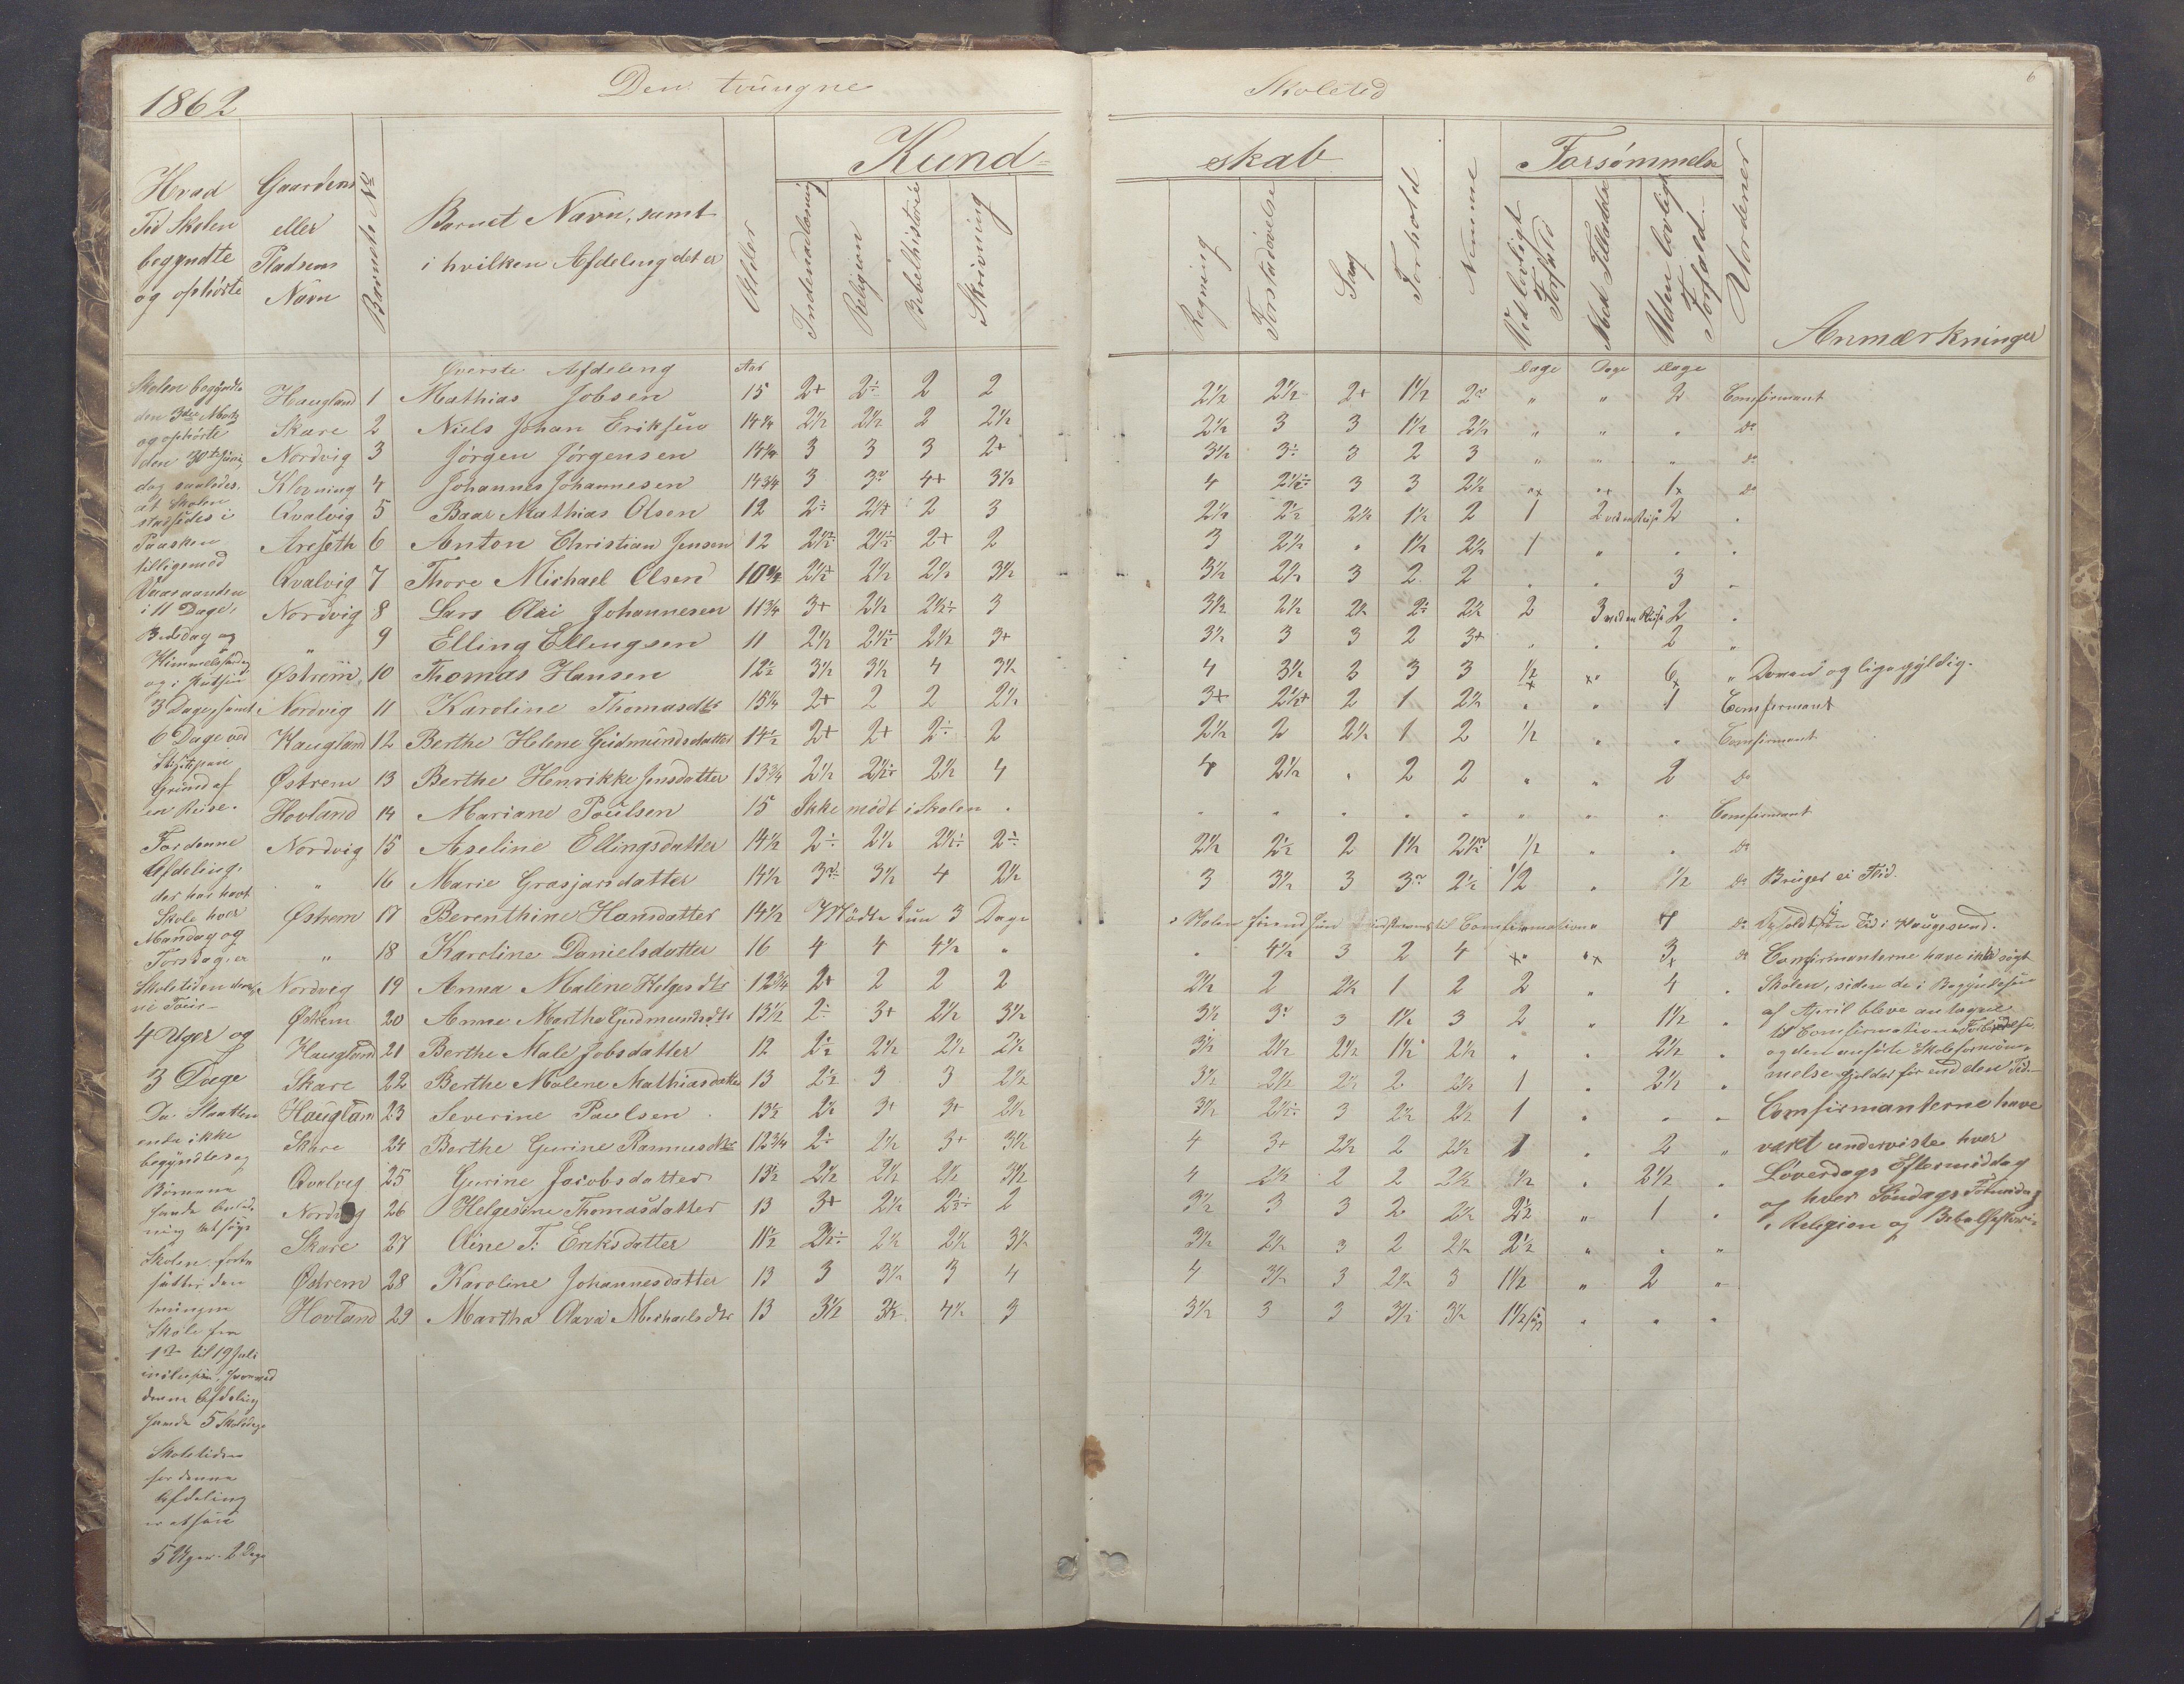 1862
Den tvungne Skoletid
6
Hvad Tid Skolen begyndte og ophørte
Gaardens eller Pladsens Navn
Barnets No
Barnet Navn, samt i hvilken Afdeling det er
Alder
Kundskab
Indenadlæsning
Religion
Bibelhistorie
Skrivning
Regning
Forstadøvelse
Sang
Forhold
Nemme
Forsømmelse
Ved lovligt Forfald
Med Tilladelse
Uden lovligt Forfald
Uordener
Anmærkninger
Øverste Afdeling Aar Dage Dage Dage
Haugland 1 Mathias Jobsen 15 2+ 2÷ 2 2 2½ 2½ 2+ 1½ " " 2 Comfirmant
Skare 2 Niels Johan Eriksen 14¼ 2½ 2½ 2 2½ 2½ 3 3 1½ 2½ " " " Do
Nordvig 3 Jørgen Jørgensen 14¼ 3 3 3 2+ 3½ 3÷ 3 2 3 " " " Do
Klovning 4 Johannes Johannesen 14¾ 3 4+ 3½ 4 2½÷ 3 3 2½ 1x Do
Qvalvig 5 Baar Mathias Olsen 12 2÷ 2½+ 2 3 2½ 2½ 2½ 1½ 2 1 2 ved en Reise 2 "
6 Anton Christian Jensen 12 2½÷ 2½÷ 2+ 2 3 2½ " 1½ 2½ 1 " " "
Qvalvig 7 Thore Michael Olsen 10¾ 2½+ 2½ 2½ 3½ 3½ 2½ 3 2 2 " " 3 "
Nordvig 8 Lars Johannesen 11¾ 3+ 2½ 2½÷ 3 3½ 2½ 2½ 2÷ 2½ 2 3 ved en Reise 2 "
" 9 Elling Ellingsen 11 2½ 2½÷ 2½ 3+ 3½ 3 3 2 3+ " " 2 "
Østrem 10 Thomas Hansen 12½ 3½ 3½ 4 3½ 4 3½ 3 3 3 ½x 6x " Doven og ligegyldig.
Nordvig 11 Karoline Thomasdtr 15¼ 2+ 2 2 2½ 3+ 2½+ 2 1 2½ " " 1 Comfirmant
Haugland 12 Berthe Helene Gudmundsdatter 14½ 2+ 2+ 2÷ 2 2½ 2 2½ 1 2 ½ " " Comfirmant
Østrem 13 Berthe Henrikke Jensdatter 13¾ 2½ 2½÷ 2½ 4 4 2½ " 2 2 " " 2 Do
Hovland 14 Mariane Poulsen 15 Ikke mødt i Skolen " " " " " " " " Comfirmant
Nordvig 15 Aseline Ellingsdatter 14½ 2÷ 2½ 2½÷ 2÷ 2½ 2½ 2 1½ ½ " " Do
" 16 Marie Grasjarsdatter 14½ 3½ 4 2½ 3 3½ 3 2½ ½ " ½ Do Bruger ei Flid.
Østrem 17 Berenthine Hansdatter 14½ Mødte kun 3 Dage i Skolen til Comfirmation " 4 Do Tid i Haugesund.
" 18 Karoline Danielsdatter 16 4 4 4½ " " 4½ 3 2 4 3x Do Comfirmanterne have ikke søgt
Nordvig 19 Anna Maline Helgesdtr 12¾ 2+ 2 2 2 2½ 2 2½ 1 2 2 " 4 " Skolen, siden de i Begyndelsen
Østrem 20 Anne Martha Gudmundsdtr 13½ 2÷ 3+ 2½ 3½ 3½ 3 1½ 3 2 " 1½ " af April bleve antagne
Haugland 21 Berthe Male Jobsdatter 12 2½ 2½ 2½ 2½ 3½ 2½ 2½ 1½ 2½ " " 2½ " til Comfirmations Forberedelse
Skare 22 Berthe Malene Mathiasdatter 13 2½ 3 3 2½ 3½ 2½ 2½ 2 2½ 1 " 2½ " og den anførte Skoleforsømmelse gjelder før end den Tid
Haugland 23 Severine Paulsen 13½ 2½ 3+ 3+ 2½ 3½ 2½÷ 3 2½ 2½ 1 " " " Comfirmanterne have
Skare 24 Berthe Gurine Rasmusdtr 12¾ 2÷ 2½ 3+ 3½ 4 3+ 2½ 2 2½ 1 " 2 " vært underviste hver
Qvalvig 25 Gurine Jacobsdatter 13½ 2½ 2½ 2½ 3½ 4 2½ 2 2 2½ ½ " 2½ " Løverdags Eftermiddag
Nordvig 26 Helgesine Thomasdatter 13 3+ 2½ 2½÷ 2 3½ 3 3 2 2½ 2½ " 1 " og hver Søndags Formiddag
Skare 27 Oline T. Eriksdatter 11½ 2½÷ 2½ 2½ 3½ 3½ 2½ 3 2 2½ 2½ " " " i Religion og Bibelhistorie
Østrem 28 Karoline Johannesdatter 13 3 3½ 3 4 4 3½ 3 2½ 3 1½ " 2 "
Hovland 29 Martha Olava Michaelsdtr 13 3½ 3½ 4½ 3 3½ 3 3 3½ 3½ " " "
Skolen begyndte
den 3die Marts
og ophørte
den 30te Juni
dog saaledes,
at Skolen
i
Paasken
tilligemed
Vaaraanden
i 11 Dage,
Bededag og
Himmelfartsdag
3 Dage, samt
6 Dage ved
Grund af
en Reise.
For denne
Afdeling,
der har havt
Skole hver
Mandag og
Torsdag, er
Skoletiden
4 Uger og
3 Dage
ikke
begyndte og
Børnene
Skolen
den
tvungne
Skole fra
1ste til 19 Juli
denne Afdeling
5 Skoledage
Skoletiden
for denne
Afdeling
er altsaa
5 Uger 2 Dage